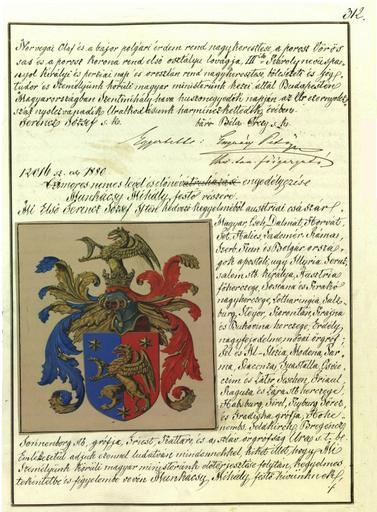 312.
Norvég sz. Olaf és a bajor polgári érdem rend nagykeresztese, a porosz Vörös
sas és a porosz korona rend első osztályu lovagja, IIIik Károly nevü span-
yol királyi és perzsai nap és oroszlán rend nagykeresztese, bölcsészeti és jog
tudor és Személyünk körüli magyar ministerünk kezei által Budapesten
Magyarországban Szentmihály hava huszonegyedik napján az Ur ezernyolcz
száz nyolczvanadik Uralkodásunk harminczkettedik évében
Ferencz József s. k.
báró Béla Orczy s. k.
1880
Czímeres nemes levél és előnév engedélyezése
Munkácsy Mihály festő részére
Mi Első Ferencz József Isten kedvező kegyelméből austriai császár
Magyar, Cseh, Dalmát, Horvát
Tót, Halics, Ladomér, Rámai,
Szerb, Kun és Bolgár orszá-
gok apostoli, ugy Illyria, Jeruz-
sálem stb. királya, Austria
főherczege, Toscana és Krakó
nagyherczege, Lotharingia, Salz-
burg, Steyer, Karantán, Krajna
és Bukovina herczege, Erdély
nagyfejedelme, morva őrgróf
Fel és Al-Slézia, Modena, Par-
ma, Piacenza, Guastalla, Osvie-
czim és Zátor, Teschen, Friaul
Ragusa és Zára stb. herczege,
Habsburg, Tirol, Kyburg, Görz,
és Gradiska grófja, Hohe-
nembs, Feldkirch, Bregenz
Sonnenberg stb. grófja, Triest, Kattaro, és a szláv őrgrófság Ura s. t. b.
Emlékezetül adjuk ezennel tudatván mindenekkel, kiket illet, hogy Mi
Személyünk körüli magyar ministerünk előterjesztése folytán, kegyelmes
tekintetbe és figyelembe vevén Munkácsy Mihály festő hivünknek